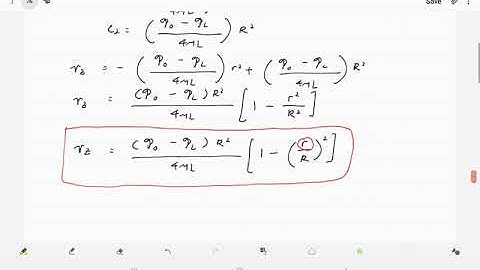 Save
4μL
C₂ = (𝒫₀ − 𝒫_L / 4μL) R²
v_z = − (𝒫₀ − 𝒫_L / 4μL) r² + (𝒫₀ − 𝒫_L / 4μL) R²
v_z = (𝒫₀ − 𝒫_L) R² / 4μL [1 − r² / R²]
v_z = (𝒫₀ − 𝒫_L) R² / 4μL [1 − (r / R)²]